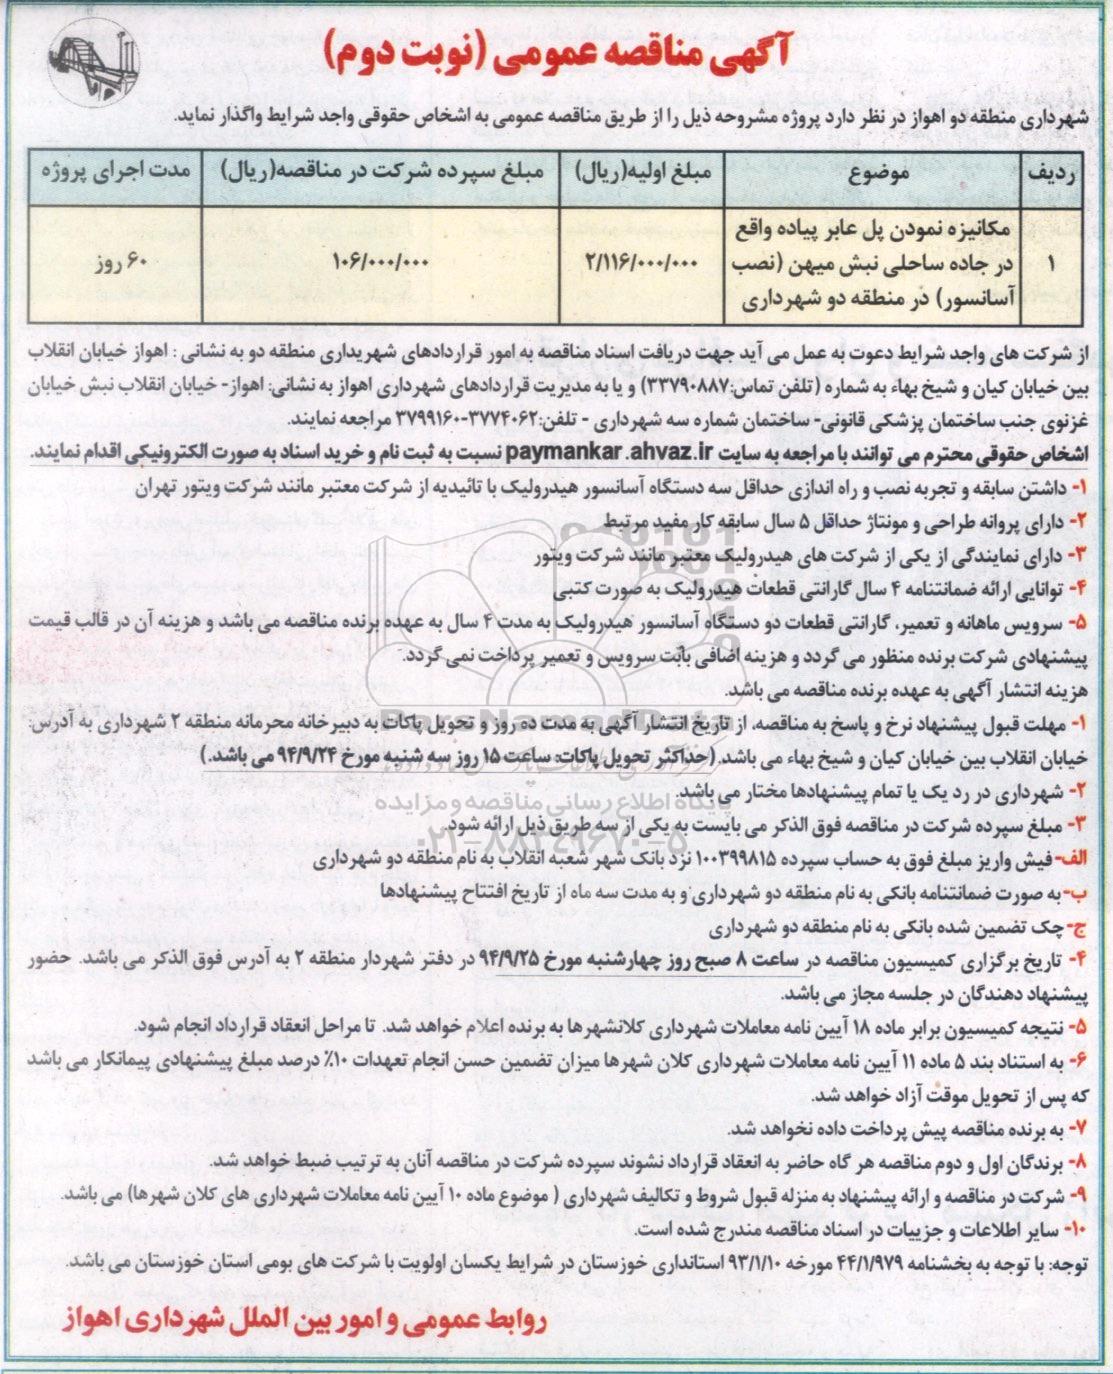 آگهی مناقصه عمومی (نوبت دوم)
شهرداری منطقه دو اهواز در نظر دارد پروژه مشروحه ذیل را از طریق مناقصه عمومی به اشخاص حقوقی واجد شرایط واگذار نماید.
ردیف موضوع مبلغ اولیه(ریال) مبلغ سپرده شرکت در مناقصه(ریال) مدت اجرای پروژه
۱ مکانیزه نمودن پل عابر پیاده واقع در جاده ساحلی نبش میهن (نصب آسانسور) در منطقه دو شهرداری ۲/۱۱۶/۰۰۰/۰۰۰ ۱۰۶/۰۰۰/۰۰۰ ۶۰ روز
از شرکت های واجد شرایط دعوت به عمل می آید جهت دریافت اسناد مناقصه به امور قراردادهای شهریداری منطقه دو به نشانی : اهواز خیابان انقلاب
بین خیابان کیان و شیخ بهاء به شماره (تلفن تماس:۳۳۷۹۰۸۸۷) و یا به مدیریت قراردادهای شهرداری اهواز به نشانی: اهواز- خیابان انقلاب نبش خیابان
غزنوی جنب ساختمان پزشکی قانونی- ساختمان شماره سه شهرداری - تلفن:۳۷۷۴۰۶۲-۳۷۹۹۱۶۰ مراجعه نمایند.
اشخاص حقوقی محترم می توانند با مراجعه به سایت paymankar.ahvaz.ir نسبت به ثبت نام و خرید اسناد به صورت الکترونیکی اقدام نمایند.
۱- داشتن سابقه و تجربه نصب و راه اندازی حداقل سه دستگاه آسانسور هیدرولیک با تائیدیه از شرکت معتبر مانند شرکت ویتور تهران
۲- دارای پروانه طراحی و مونتاژ حداقل ۵ سال سابقه کار مفید مرتبط
۳- دارای نمایندگی از یکی از شرکت های هیدرولیک معتبر مانند شرکت ویتور
۴- توانایی ارائه ضمانتنامه ۴ سال گارانتی قطعات هیدرولیک به صورت کتبی
۵- سرویس ماهانه و تعمیر، گارانتی قطعات دو دستگاه آسانسور هیدرولیک به مدت ۴ سال به عهده برنده مناقصه می باشد و هزینه آن در قالب قیمت
پیشنهادی شرکت برنده منظور می گردد و هزینه اضافی بابت سرویس و تعمیر پرداخت نمی گردد.
هزینه انتشار آگهی به عهده برنده مناقصه می باشد.
۱- مهلت قبول پیشنهاد نرخ و پاسخ به مناقصه، از تاریخ انتشار آگهی به مدت ده روز و تحویل پاکات به دبیرخانه محرمانه منطقه ۲ شهرداری به آدرس:
خیابان انقلاب بین خیابان کیان و شیخ بهاء می باشد. (حداکثر تحویل پاکات: ساعت ۱۵ روز سه شنبه مورخ ۹۴/۹/۲۴ می باشد.)
۲- شهرداری در رد یک یا تمام پیشنهادها مختار می باشد.
پایگاه اطلاع رسانی مناقصه و مزایده
۳- مبلغ سپرده شرکت در مناقصه فوق الذکر می بایست به یکی از سه طریق ذیل ارائه شود
۰۲۱-۸۸۳۴۹۶۷۰-۵
الف-فیش واریز مبلغ فوق به حساب سپرده ۱۰۰۳۹۹۸۱۵ نزد بانک شهر شعبه انقلاب به نام منطقه دو شهرداری
ب-به صورت ضمانتنامه بانکی به نام منطقه دو شهرداری و به مدت سه ماه از تاریخ افتتاح پیشنهادها
ج-چک تضمین شده بانکی به نام منطقه دو شهرداری
۴- تاریخ برگزاری کمیسیون مناقصه در ساعت ۸ صبح روز چهارشنبه مورخ ۹۴/۹/۲۵ در دفتر شهردار منطقه ۲ به آدرس فوق الذکر می باشد. حضور
پیشنهاد دهندگان در جلسه مجاز می باشد.
۵- نتیجه کمیسیون برابر ماده ۱۸ آیین نامه معاملات شهرداری کلانشهرها به برنده اعلام خواهد شد. تا مراحل انعقاد قرارداد انجام شود.
۶- به استناد بند ۵ ماده ۱۱ آیین نامه معاملات شهرداری کلان شهرها میزان تضمین حسن انجام تعهدات ۱۰٪ درصد مبلغ پیشنهادی پیمانکار می باشد
که پس از تحویل موقت آزاد خواهد شد.
۷- به برنده مناقصه پیش پرداخت داده نخواهد شد.
۸- برندگان اول و دوم مناقصه هر گاه حاضر به انعقاد قرارداد نشوند سپرده شرکت در مناقصه آنان به ترتیب ضبط خواهد شد.
۹- شرکت در مناقصه و ارائه پیشنهاد به منزله قبول شروط و تکالیف شهرداری ( موضوع ماده ۱۰ آیین نامه معاملات شهرداری های کلان شهرها) می باشد.
۱۰- سایر اطلاعات و جزییات در اسناد مناقصه مندرج شده است.
توجه: با توجه به بخشنامه ۴۴/۱/۹۷۹ مورخه ۹۳/۱/۱۰ استانداری خوزستان در شرایط یکسان اولویت با شرکت های بومی استان خوزستان می باشد.
روابط عمومی و امور بین الملل شهرداری اهواز